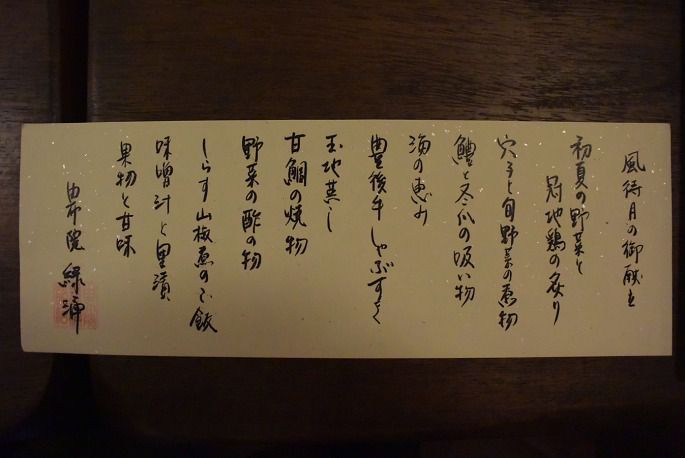 風待月の御献立
初夏の野菜と
冠地鶏の炙り
穴子と旬野菜の煮物
鱧と冬瓜の吸い物
海の恵み
豊後牛しゃぶすき
玉地蒸し
甘鯛の焼物
野菜の酢の物
しらす山椒煮のご飯
味噌汁と里漬
果物と甘味
由布院 緑涌